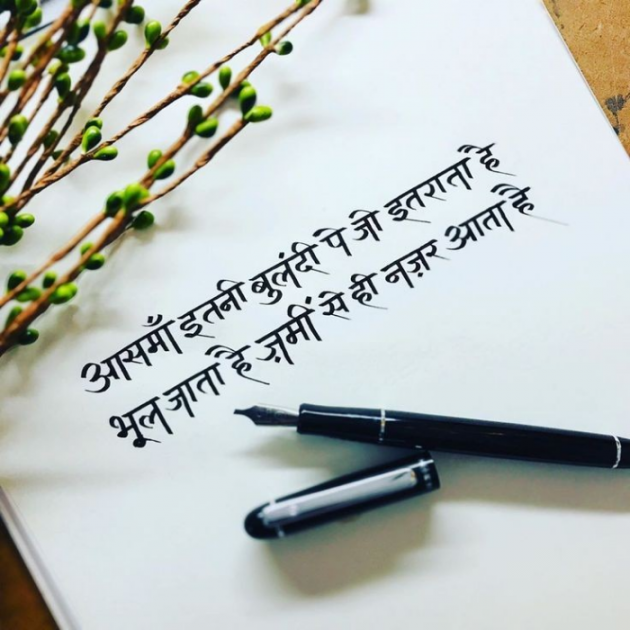 आसमाँ इतनी बुलंदी पे जो इतराता है
भूल जाता है ज़मीं से ही नज़र आता है